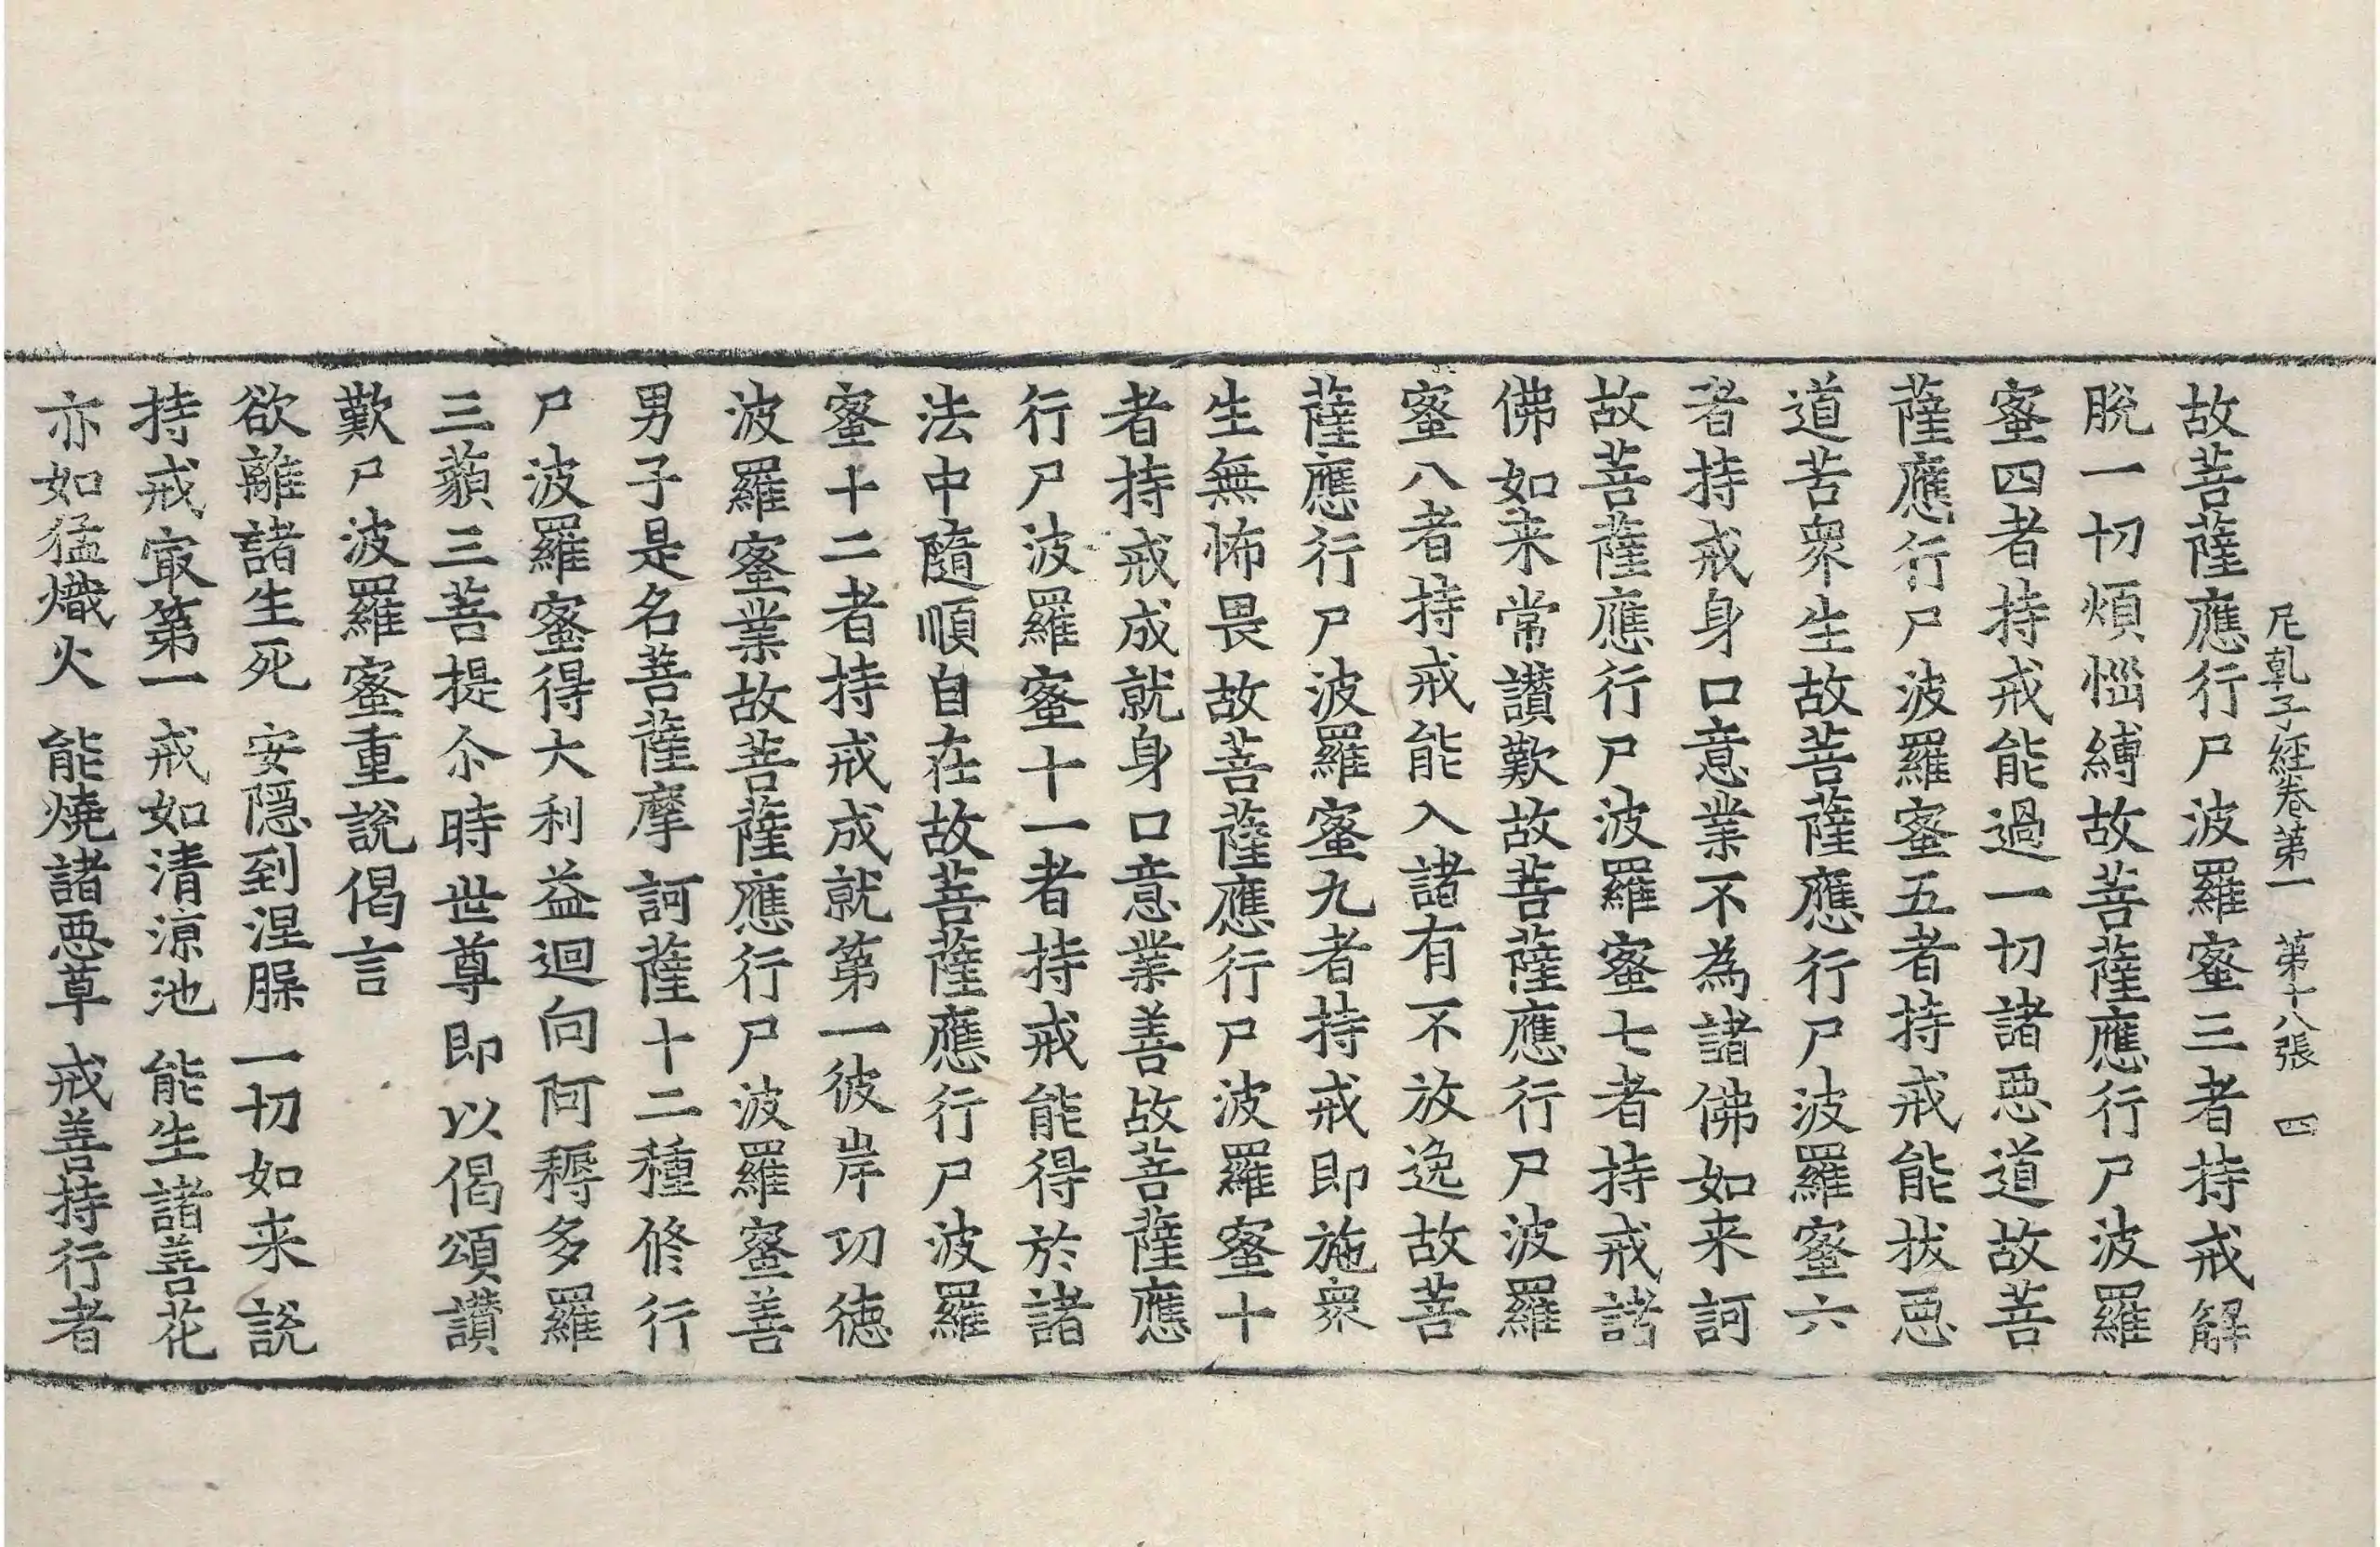 尼乹子經卷第一　第十八張　四
故菩薩應行尸波羅蜜三者持戒解
脫一切煩惱縛故菩薩應行尸波羅
蜜四者持戒能過一切諸惡道故菩
薩應行尸波羅蜜五者持戒能拔惡
道苦衆生故菩薩應行尸波羅蜜六
者持戒身口意業不為諸佛如来訶
故菩薩應行尸波羅蜜七者持戒諸
佛如来常讃歎故菩薩應行尸波羅
蜜八者持戒能入諸有不放逸故菩
薩應行尸波羅蜜九者持戒即施衆
生無怖畏故菩薩應行尸波羅蜜十
者持戒成就身口意業善故菩薩應
行尸波羅蜜十一者持戒能得於諸
法中隨順自在故菩薩應行尸波羅
蜜十二者持戒成就第一彼岸功徳
波羅蜜業故菩薩應行尸波羅蜜善
男子是名菩薩摩訶薩十二種修行
尸波羅蜜得大利益迴向阿耨多羅
三藐三菩提尒時世尊即以偈頌讃
歎尸波羅蜜重說偈言
欲離諸生死　安隱到涅槃　一切如来說
持戒冣第一　戒如清涼池　能生諸善花
亦如猛熾火　能燒諸惡草　戒善持行者